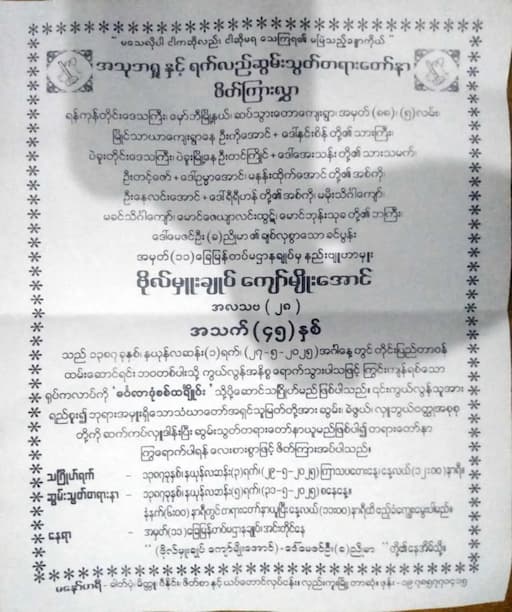 " မသေလိုပါ ငါကဆိုလည်း ငါဆိုမရ သေကြရ၏ မမြဲသည့်ခန္ဓာကိုယ် "
အသုဘရှု နှင့် ရက်လည်ဆွမ်းသွတ်တရားတော်နာ
ဖိတ်ကြားလွှာ
ရန်ကုန်တိုင်းဒေသကြီး၊ မှော်ဘီမြို့နယ်၊ ဆပ်သွားတောကျေးရွာ၊ အမှတ် (၈၈)၊ (၅) လမ်း၊
မြိုင်သာယာကျေးရွာနေ ဦးကိုအောင် + ဒေါ်နှင်းစိန် တို့၏ သားကြီး၊
ပဲခူးတိုင်းဒေသကြီး၊ ပဲခူးမြို့နေ ဦးတင်ကြိုင် + ဒေါ်အေးသန်း တို့၏ သားသမက်၊
ဦးတင့်ဇော် + ဒေါ်ဥမ္မာအောင်၊ မနန်းထိုက်အောင် တို့၏ အစ်ကို၊
ဦးနေလင်းအောင် + ဒေါ်ရီရီဟန် တို့၏ အစ်ကို၊ မမိုးသိင်္ဂါကျော်၊
မခင်သိင်္ဂါကျော်၊ မောင်ဇေယျာလင်းထွဋ်၊ မောင်ဘုန်းသုခ တို့၏ ဘကြီး၊
ဒေါ်မေဇင်ဦး (ခ) ညိုမာ ၏ ချစ်လှစွာသော ခင်ပွန်း
အမှတ် (၁၁) ခြေမြန်တပ်မဌာနချုပ်မှ နည်းဗျူဟာမှူး
ဗိုလ်မှူးချုပ် ကျော်မျိုးအောင်
အလသဗ ( ၂၈ )
အသက် (၄၅) နှစ်
သည် ၁၃၈၇ ခုနှစ်၊ နယုန်လဆန်း (၁) ရက်၊ (၂၇-၅-၂၀၂၅) အင်္ဂါနေ့ တွင် တိုင်းပြည်တာဝန်
ထမ်းဆောင်ရင်း ဘဝတစ်ပါးသို့ ကွယ်လွန်အနိစ္စ ရောက်သွားပါသဖြင့် ကြွင်းကျန်ရစ်သော
ရုပ်ကလာပ်ကို " မင်္ဂလာဒုံစစ်သင်္ချိုင်း " သို့ပို့ဆောင်သင်္ဂြိုဟ်မည် ဖြစ်ပါသည်။ ၎င်းကွယ်လွန်သူအား
ရည်စူး၍ ဘုရားအမှူးရှိသောသံဃာတော်အရှင်သူမြတ်တို့အား ဆွမ်း၊ မဲဖွယ်၊ လှူဘွယ်ဝတ္ထုအစုစု
တို့ကို ဆက်ကပ်လှူဒါန်းပြီး ဆွမ်းသွတ်တရားတော်နာယူမည်ဖြစ်ပါ၍ တရားတော်နာ
ကြွရောက်ပါရန် လေးစားစွာဖြင့် ဖိတ်ကြားအပ်ပါသည်။
သင်္ဂြိုဟ်ရက် - ၁၃၈၇ခုနှစ်၊ နယုန်လဆန်း(၃)ရက်၊ (၂၉-၅-၂၀၂၅) ကြာသပတေးနေ့၊ နေ့လယ် (၁၂:၀၀) နာရီ။
ဆွမ်းသွတ်တရားနာ - ၁၃၈၇ခုနှစ်၊ နယုန်လဆန်း(၅)ရက်၊ (၃၁-၅-၂၀၂၅) စနေနေ့၊
နံနက် (၆:၀၀) နာရီတွင် တရားတော်နာယူပြီး နေ့လယ် (၁၁:၀၀) နာရီထိ ဧည့်ခံကျွေးမွေးပါမည်။
နေရာ - အမှတ် (၁၁) ခြေမြန်တပ်မဌာနချုပ်၊ အင်းတိုင်နေ
" (ဗိုလ်မှူးချုပ် ကျော်မျိုးအောင်) - ဒေါ်မေဇင်ဦး (ခ) ညိုမာ " တို့၏နေအိမ်သို့။
မနော်ဟရီ - ဓါတ်ပုံ၊ မိတ္တူ၊ ဗီနိုင်း၊ ဖိတ်စာ နှင့် ယပ်တောင်လုပ်ငန်း၊ လှည်းကူးမြို့